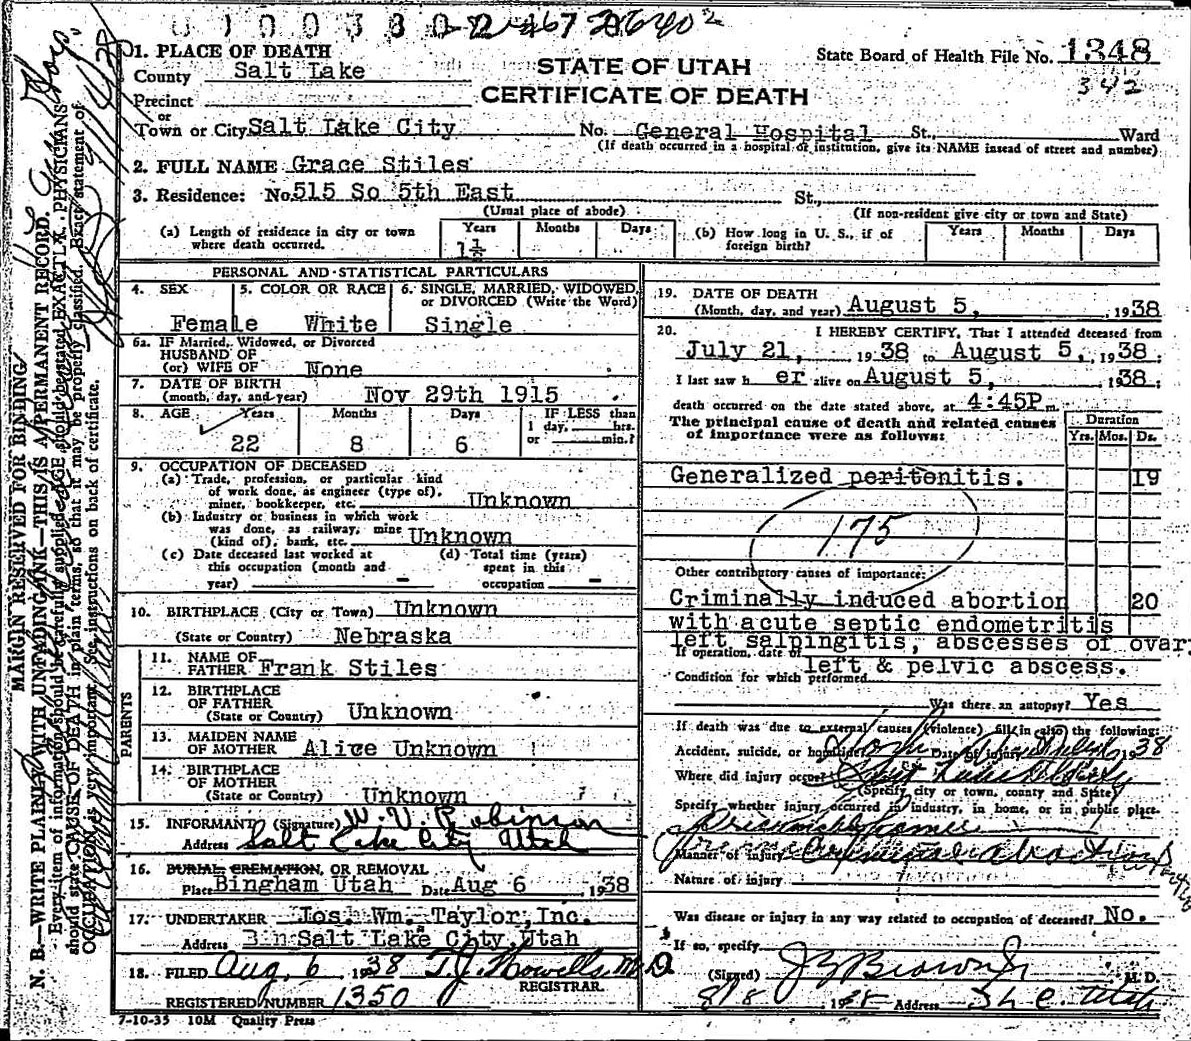 1. PLACE OF DEATH
County Salt Lake
STATE OF UTAH
State Board of Health File No. 1348
342
Precinct
or
CERTIFICATE OF DEATH
Town or City Salt Lake City No. General Hospital St., Ward
(If death occurred in a hospital or institution, give its NAME instead of street and number)
2. FULL NAME Grace Stiles
3. Residence: No. 515 So 5th East St.,
(Usual place of abode) (If non-resident give city or town and State)
(a) Length of residence in city or town where death occurred. Years 1½ Months Days
(b) How long in U. S., if of foreign birth? Years Months Days
PERSONAL AND STATISTICAL PARTICULARS
4. SEX Female
5. COLOR OR RACE White
6. SINGLE, MARRIED, WIDOWED, or DIVORCED (Write the Word) Single
6a. IF Married, Widowed, or Divorced
HUSBAND OF
(or) WIFE OF None
7. DATE OF BIRTH
(month, day, and year) Nov 29th 1915
8. AGE Years 22 Months 8 Days 6 IF LESS than 1 day, hrs. or min.?
9. OCCUPATION OF DECEASED
(a) Trade, profession, or particular kind
of work done, as engineer (type of),
miner, bookkeeper, etc. Unknown
(b) Industry or business in which work
was done, as railway, mine
(kind of), bank, etc. Unknown
(c) Date deceased last worked at this occupation (month and year) -
(d) Total time (years) spent in this occupation -
10. BIRTHPLACE (City or Town) Unknown
(State or Country) Nebraska
PARENTS
11. NAME OF
FATHER Frank Stiles
12. BIRTHPLACE
OF FATHER
(State or Country) Unknown
13. MAIDEN NAME
OF MOTHER Alice Unknown
14. BIRTHPLACE
OF MOTHER
(State or Country) Unknown
15. INFORMANT (Signature) W. V. Robinson
Address Salt Lake City Utah
16. BURIAL, CREMATION, OR REMOVAL
Place Bingham Utah Date Aug 6 1938
17. UNDERTAKER Jos. Wm. Taylor, Inc.
Address Salt Lake City, Utah
18. FILED Aug. 6 1938 T. J. Howells, M D
REGISTRAR
REGISTERED NUMBER 1350
7-10-35 10M Quality Press
19. DATE OF DEATH
(Month, day, and year) August 5, 1938
20. I HEREBY CERTIFY, That I attended deceased from
July 21, 1938 to August 5, 1938;
I last saw h er alive on August 5, 1938;
death occurred on the date stated above, at 4:45P m.
The principal cause of death and related causes
of importance were as follows:
Duration
Yrs. Mos. Ds.
Generalized peritonitis. 19
175
Other contributory causes of importance:
Criminally induced abortion 20
with acute septic endometritis
left salpingitis, abscesses of ovary
If operation, date of
left & pelvic abscess.
Condition for which performed
Was there an autopsy? Yes
If death was due to external causes (violence) fill in also the following:
Accident, suicide, or homicide? Date of injury 1938
Where did injury occur? Salt Lake
(Specify city or town, county and State)
Specify whether injury occurred in industry, in home, or in public place.
Manner of injury
Nature of injury
Was disease or injury in any way related to occupation of deceased? No.
If so, specify
(Signed) M. D.
8/8 1938 Address S L C. Utah
MARGIN RESERVED FOR BINDING
N. B.—WRITE PLAINLY, WITH UNFADING INK—THIS IS A PERMANENT RECORD.
Every item of information should be carefully supplied. AGE should be stated EXACTLY. PHYSICIANS
should state CAUSE OF DEATH in plain terms, so that it may be properly classified. Exact statement of
OCCUPATION is very important. See instructions on back of certificate.